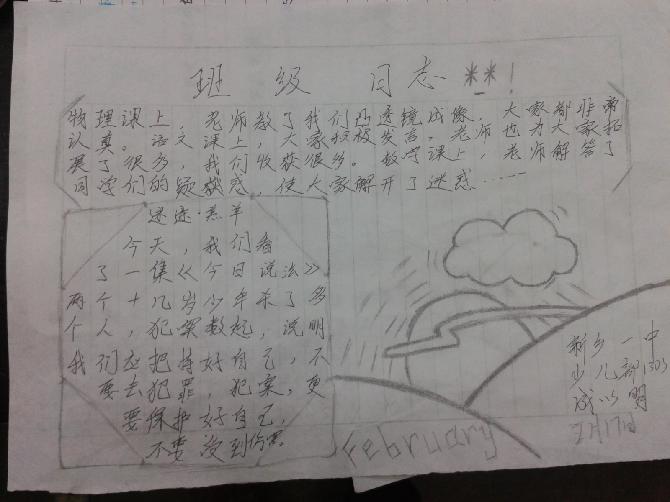 班 级 日志**!
物理课上,老师教了我们凸透镜成像.大家都非常
认真。语文课上,大家积极发言。老师也为大家拓
展了很多,我们收获很多。数学课上,老师解答了
同学们的疑惑,使大家解开了迷惑……
迷迹·羔羊
今天,我们看
了一集《今日说法》
两个十几岁少年杀了多
个人,犯案数起,说明
我们应把持好自己,不
要去犯罪,犯案,更
要保护好自己,
不要受到伤害
新乡一中
少儿部1303
成以明
2月17日
February